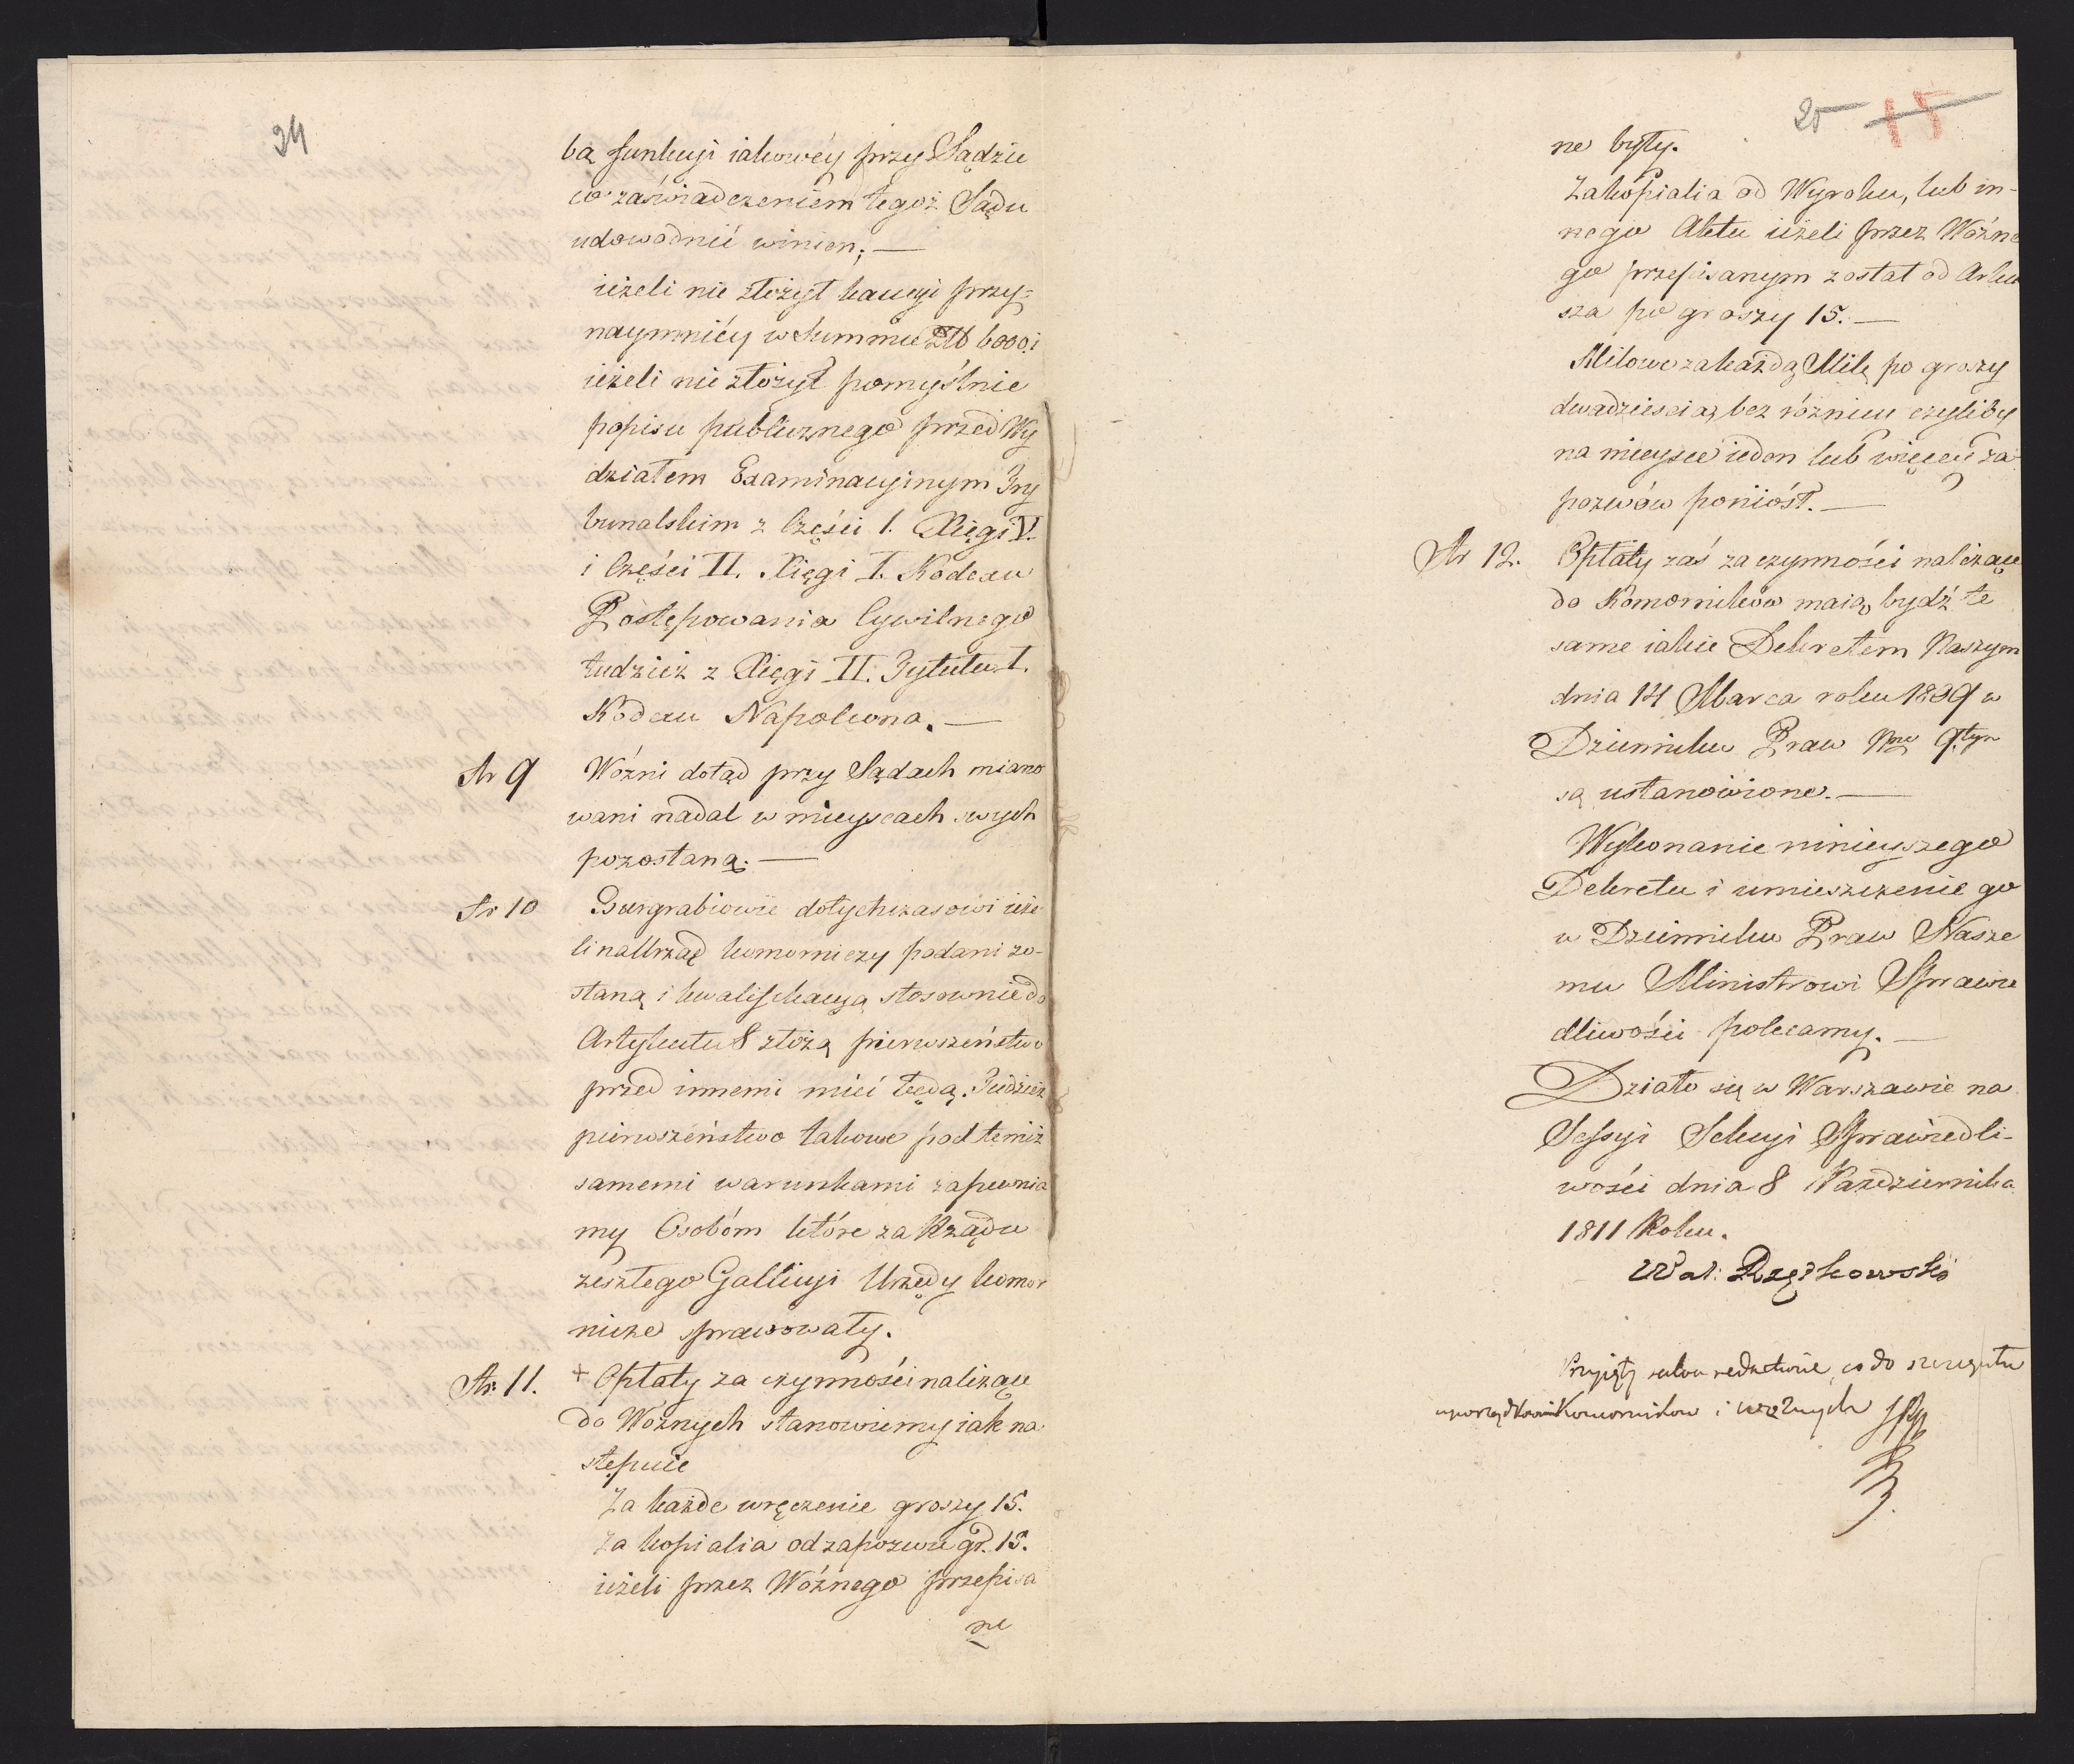 24
bą funkcyi iakowéy przy Sądzie
co zaświadczeniem tegoż Sądu
udowodnić winien; —
ieżeli nie złożył kaucyi przy=
naymniéy w Summie Złł 6000. i
ieżeli nie złożył pomyślnie
popisu publicznego przed Wy
działem Examinacyinym Try
bunalskim z Części I. Xięgi V.
i Części II. Xięgi I. Kodexu
Postępowania Cywilnego
tudzież z Xięgi II. Tytułu I.
Kodexu Napoleona. —
Ar 9 Woźni dotąd przy Sądach miano
wani nadal w mieyscach swych
pozostaną. —
Ar 10 Burgrabiowie dotychczasowi ieże
li na Urząd komorniczy podani zo-
staną i kwalifikacyą stosownie do
Artykułu 8 złożą pierwszeństwo
przed innemi mieć będą. Tudzież
pierwszeństwo takowe pod temiż
samemi warunkami zapewnia
my Osobóm które za Rządu
zeszłego Gallicyi Urzędy komor
nicze sprawowały.
Ar 11. + Opłaty za czynności należące
do Woźnych stanowiemy iak na
stępuie
Za każde wręczenie groszy 15.
Za kopialia od zapozwu gr. 15.
ieżeli przez Woźnego przepisa
ne
25 15
ne były.
Za kopialia od Wyroku, lub in-
nego Aktu ieżeli przez Woźne
go przepisanym został od Arku
sza po groszy 15. —
Milowe za każdą Milę po groszy
dwadzieścia, bez różnicy czyliby
na mieysce ieden lub więcéy za
pozwów poniósł. —
Ar 12. Opłaty zaś za czynności należące
do Komorników maią bydź te
same iakie Dekretem Naszym
dnia 14 Marca roku 1809 w
Dzienniku Praw Nrze 9tym
są ustanowione. —
Wykonanie ninieyszego
Dekretu i umieszczenie go
w Dzienniku Praw Nasze
mu Ministrowi Sprawie
dliwości polecamy. —
Działo się w Warszawie na
Sessyi Sekcyi Sprawiedli-
wości dnia 8 Października
1811 Roku.
Wal: Rzętkowski
Przyięty salva redactione, co do szczegółu
Komorników i woźnych